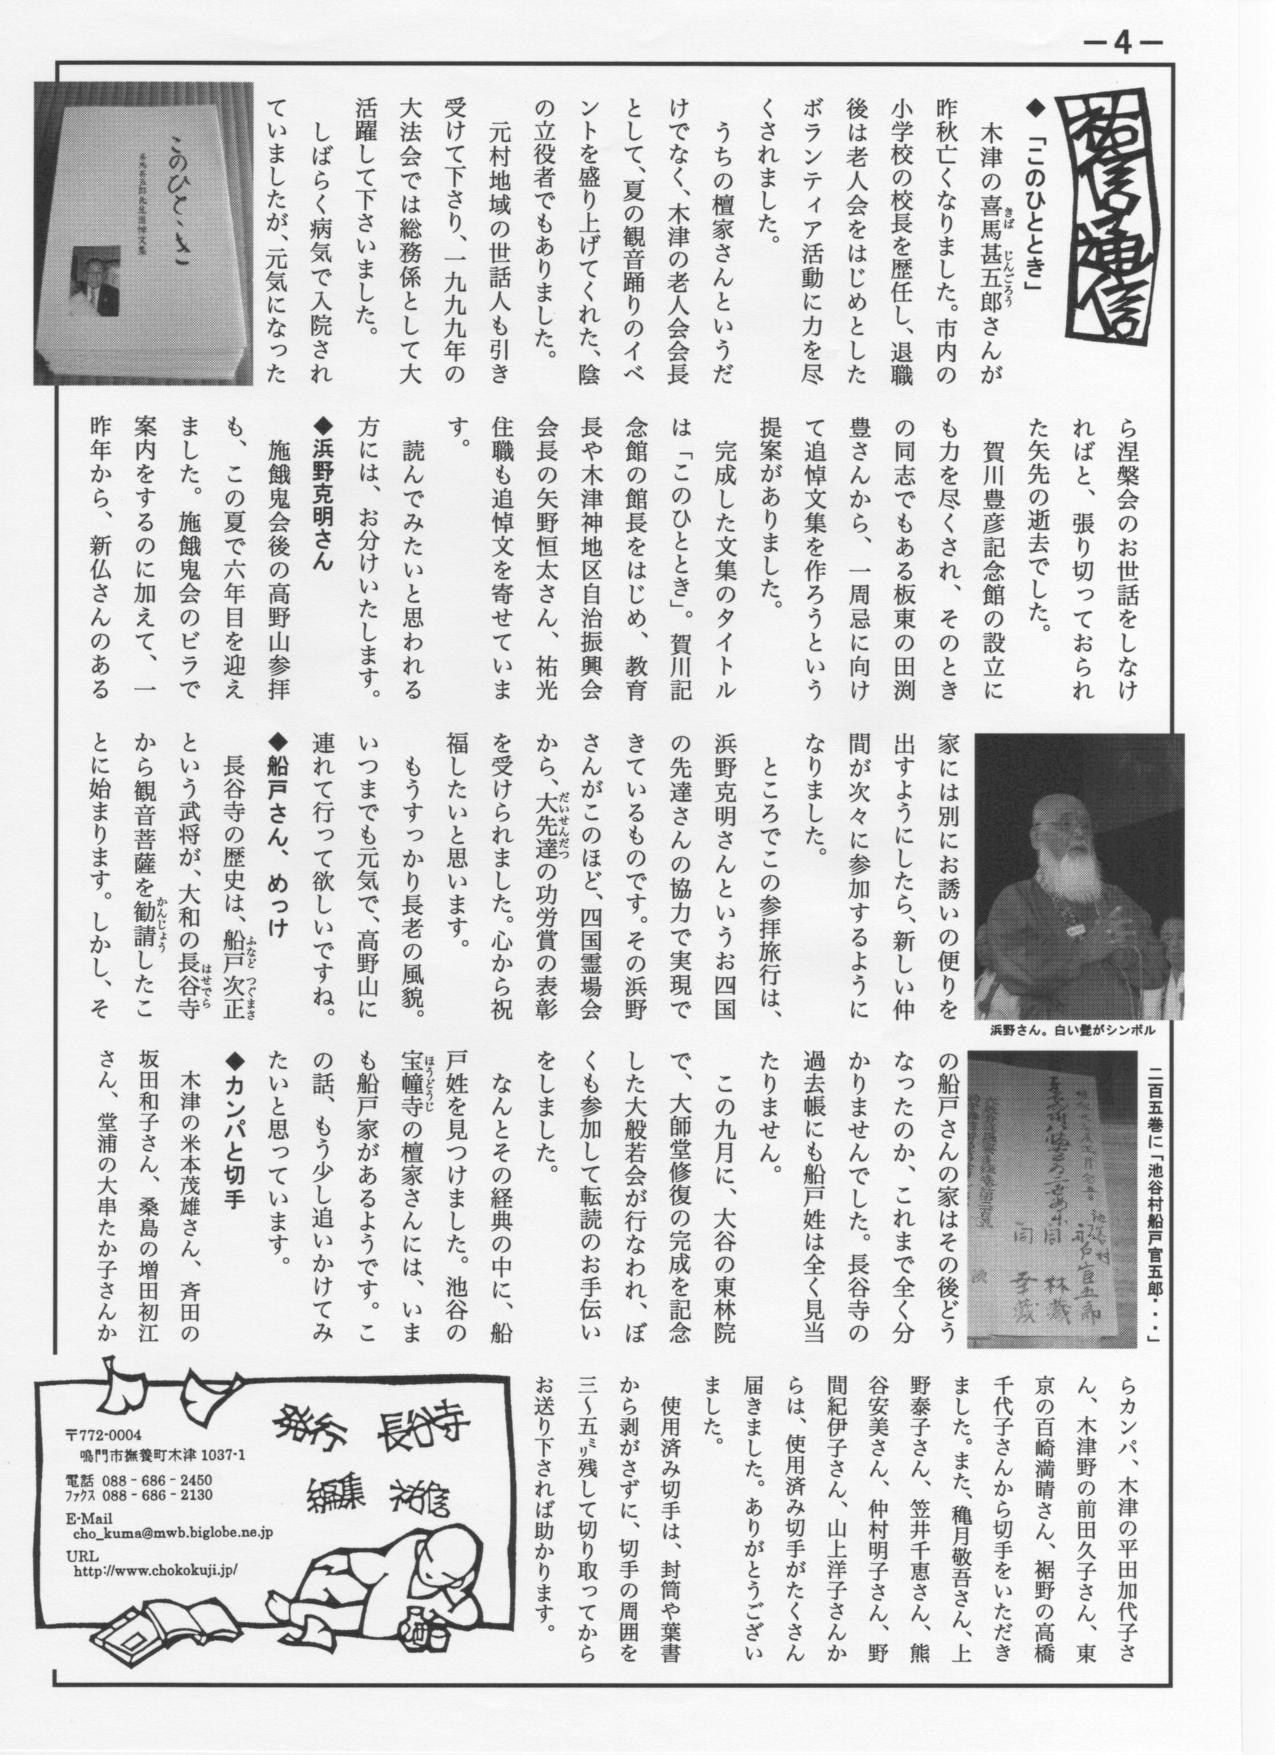 －4－
祐信通信
◆「このひととき」
木津の喜馬甚五郎さんが
きば じんごろう
昨秋亡くなりました。市内の
小学校の校長を歴任し、退職
後は老人会をはじめとした
ボランティア活動に力を尽
くされました。
うちの檀家さんというだ
けでなく、木津の老人会会長
として、夏の観音踊りのイベ
ントを盛り上げてくれた、陰
の立役者でもありました。
元村地域の世話人も引き
受けて下さり、一九九九年の
大法会では総務係として大
活躍して下さいました。
しばらく病気で入院され
ていましたが、元気になった
このひととき
喜馬甚五郎先生追悼文集
ら涅槃会のお世話をしなけ
ればと、張り切っておられ
た矢先の逝去でした。
賀川豊彦記念館の設立に
も力を尽くされ、そのとき
の同志でもある板東の田渕
豊さんから、一周忌に向け
て追悼文集を作ろうという
提案がありました。
完成した文集のタイトル
は「このひととき」。賀川記
念館の館長をはじめ、教育
長や木津神地区自治振興会
会長の矢野恒太さん、祐光
住職も追悼文を寄せていま
す。
読んでみたいと思われる
方には、お分けいたします。
◆浜野克明さん
施餓鬼会後の高野山参拝
も、この夏で六年目を迎え
ました。施餓鬼会のビラで
案内をするのに加えて、一
昨年から、新仏さんのある
浜野さん。白い髭がシンボル
家には別にお誘いの便りを
出すようにしたら、新しい仲
間が次々に参加するように
なりました。
ところでこの参拝旅行は、
浜野克明さんというお四国
の先達さんの協力で実現で
きているものです。その浜野
さんがこのほど、四国霊場会
から、大先達の功労賞の表彰
だいせんだつ
を受けられました。心から祝
福したいと思います。
もうすっかり長老の風貌。
いつまでも元気で、高野山に
連れて行って欲しいですね。
◆船戸さん、めっけ
長谷寺の歴史は、船戸次正
ふなど つぐまさ
という武将が、大和の長谷寺
はせでら
から観音菩薩を勧請したこ
かんじょう
とに始まります。しかし、そ
二百五巻に「池谷村船戸官五郎・・・」
の船戸さんの家はその後どう
なったのか、これまで全く分
かりませんでした。長谷寺の
過去帳にも船戸姓は全く見当
たりません。
この九月に、大谷の東林院
で、大師堂修復の完成を記念
した大般若会が行なわれ、ぼ
くも参加して転読のお手伝い
をしました。
なんとその経典の中に、船
戸姓を見つけました。池谷の
宝幢寺の檀家さんには、いま
ほうどうじ
も船戸家があるようです。こ
の話、もう少し追いかけてみ
たいと思っています。
◆カンパと切手
木津の米本茂雄さん、斉田の
坂田和子さん、桑島の増田初江
さん、堂浦の大串たか子さんか
らカンパ、木津の平田加代子さ
ん、木津野の前田久子さん、東
京の百崎満晴さん、裾野の高橋
千代子さんから切手をいただき
ました。また、穐月敬吾さん、上
野泰子さん、笠井千恵さん、熊
谷安美さん、仲村明子さん、野
間紀伊子さん、山上洋子さんか
らは、使用済み切手がたくさん
届きました。ありがとうござい
ました。
使用済み切手は、封筒や葉書
から剥がさずに、切手の周囲を
三～五㍉残して切り取ってから
お送り下されば助かります。
発行 長谷寺
編集 祐信
〒772-0004
鳴門市撫養町木津 1037-1
電話 088－686－2450
ﾌｧｸｽ 088－686－2130
E-Mail
cho_kuma@mwb.biglobe.ne.jp
URL
http://www.chokokuji.jp/